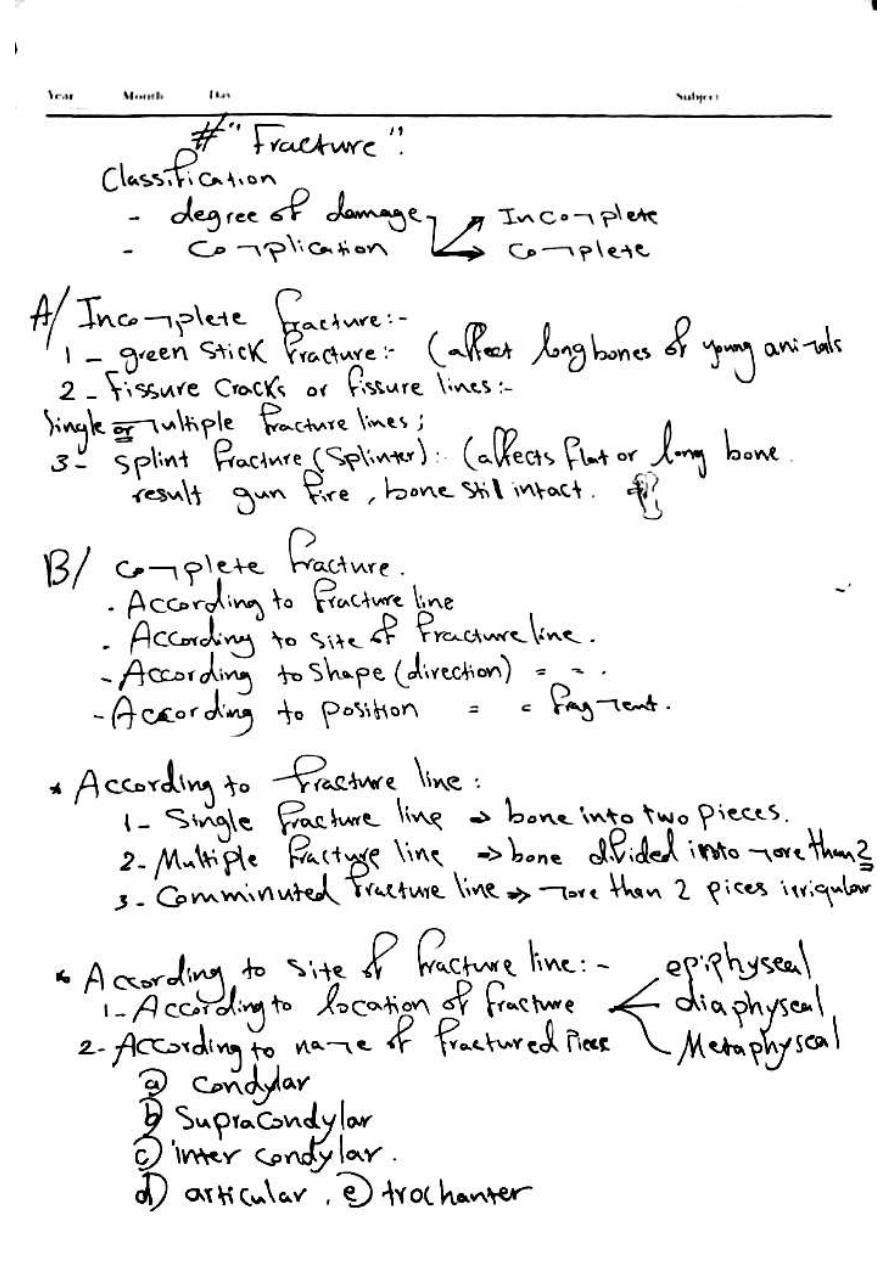 Year Month Day Subject
# "Fracture".
Classification
- degree of damage → Incomplete
- Complication → Complete
A/ Incomplete fracture:-
1 - green stick fracture:- (affect long bones of young animals
2 - fissure cracks or fissure lines:-
Single or multiple fracture lines;
3- splint fracture (Splinter):- (affects flat or long bone.
result gun fire, bone stil intact.
B/ complete fracture.
. According to fracture line
. According to site of fracture line.
- According to shape (direction) = = .
- According to position = = fragment.
* According to fracture line:
1- Single fracture line → bone into two pieces.
2- Multiple fracture line → bone divided into more than 2
3- Comminuted fracture line → more than 2 pices irrigular
* According to site of fracture line:-
1- According to location of fracture epiphyseal
diaphyseal
Metaphyseal
2- According to name of fractured Piece
a) condylar
b) Supracondylar
c) inter condylar.
d) articular, e) trochanter